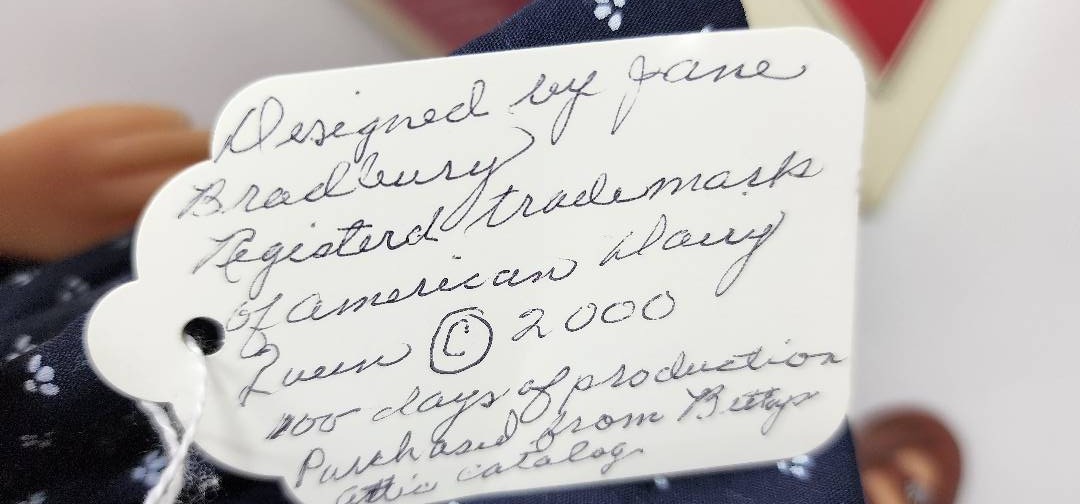 Designed by Jane
Bradbury
Registerd trademark
of american Dairy
Queen © 2000
100 days of production
Purchased from Bettys
attic catalog